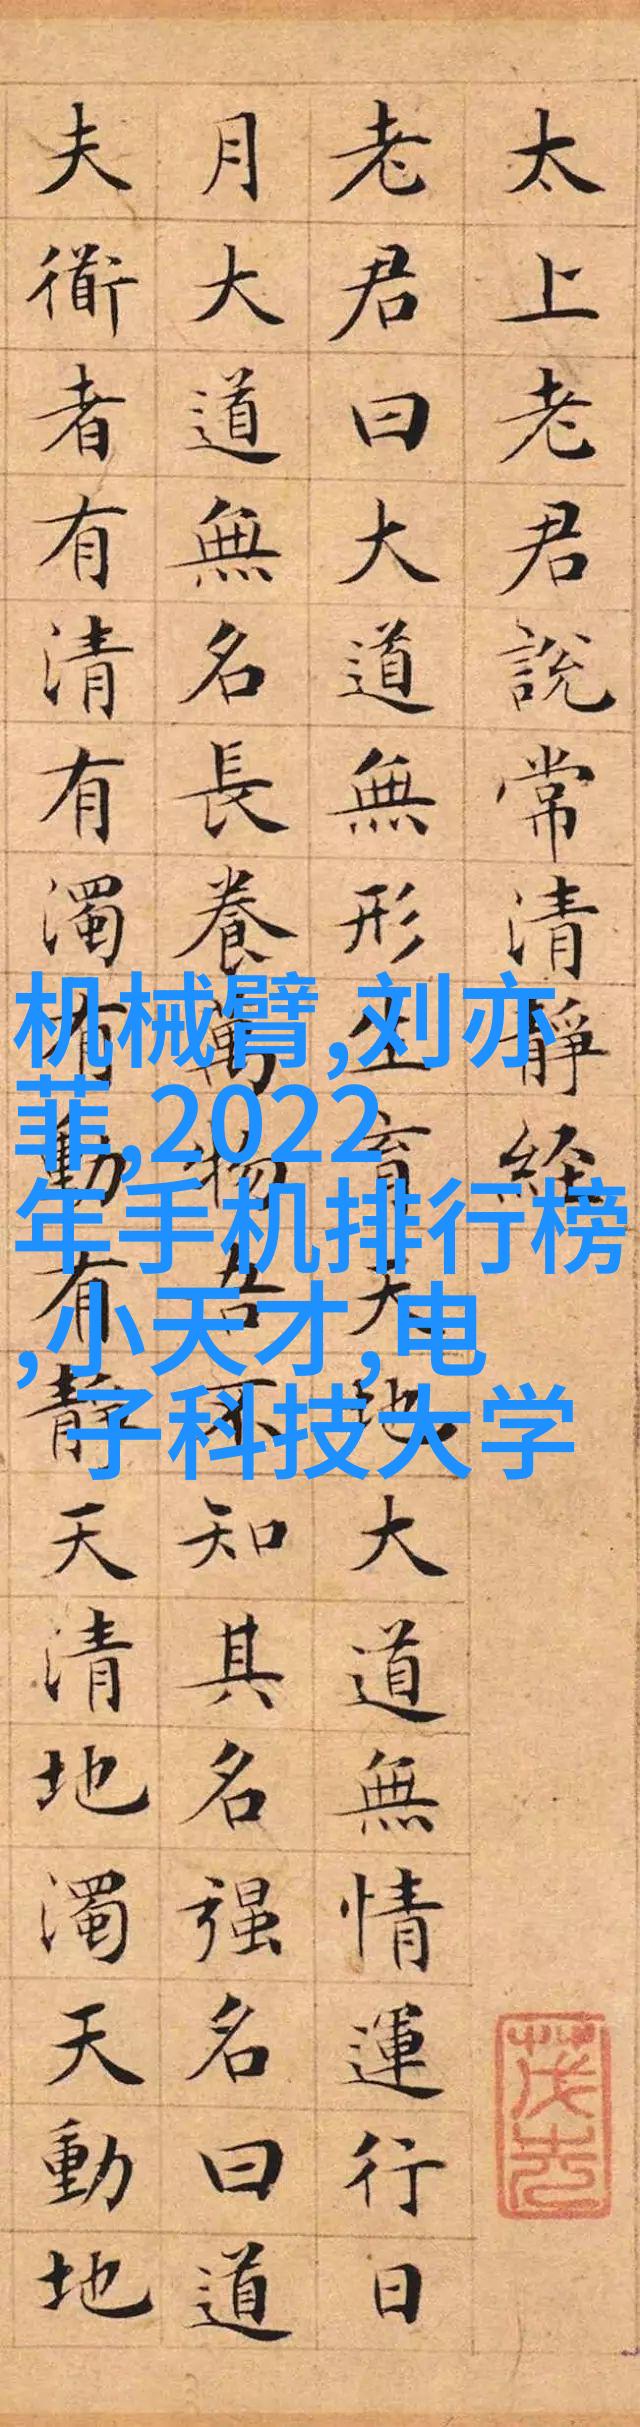 太上老君說常清靜経
老君曰大道無形生育天地大道無情運行日
月大道無名長養萬物吾不知其名强名曰道
夫衜者有清有濁有動有靜天清地濁天動地
机械臂,刘亦
菲,2022
年手机排行榜
,小天才,电
子科技大学